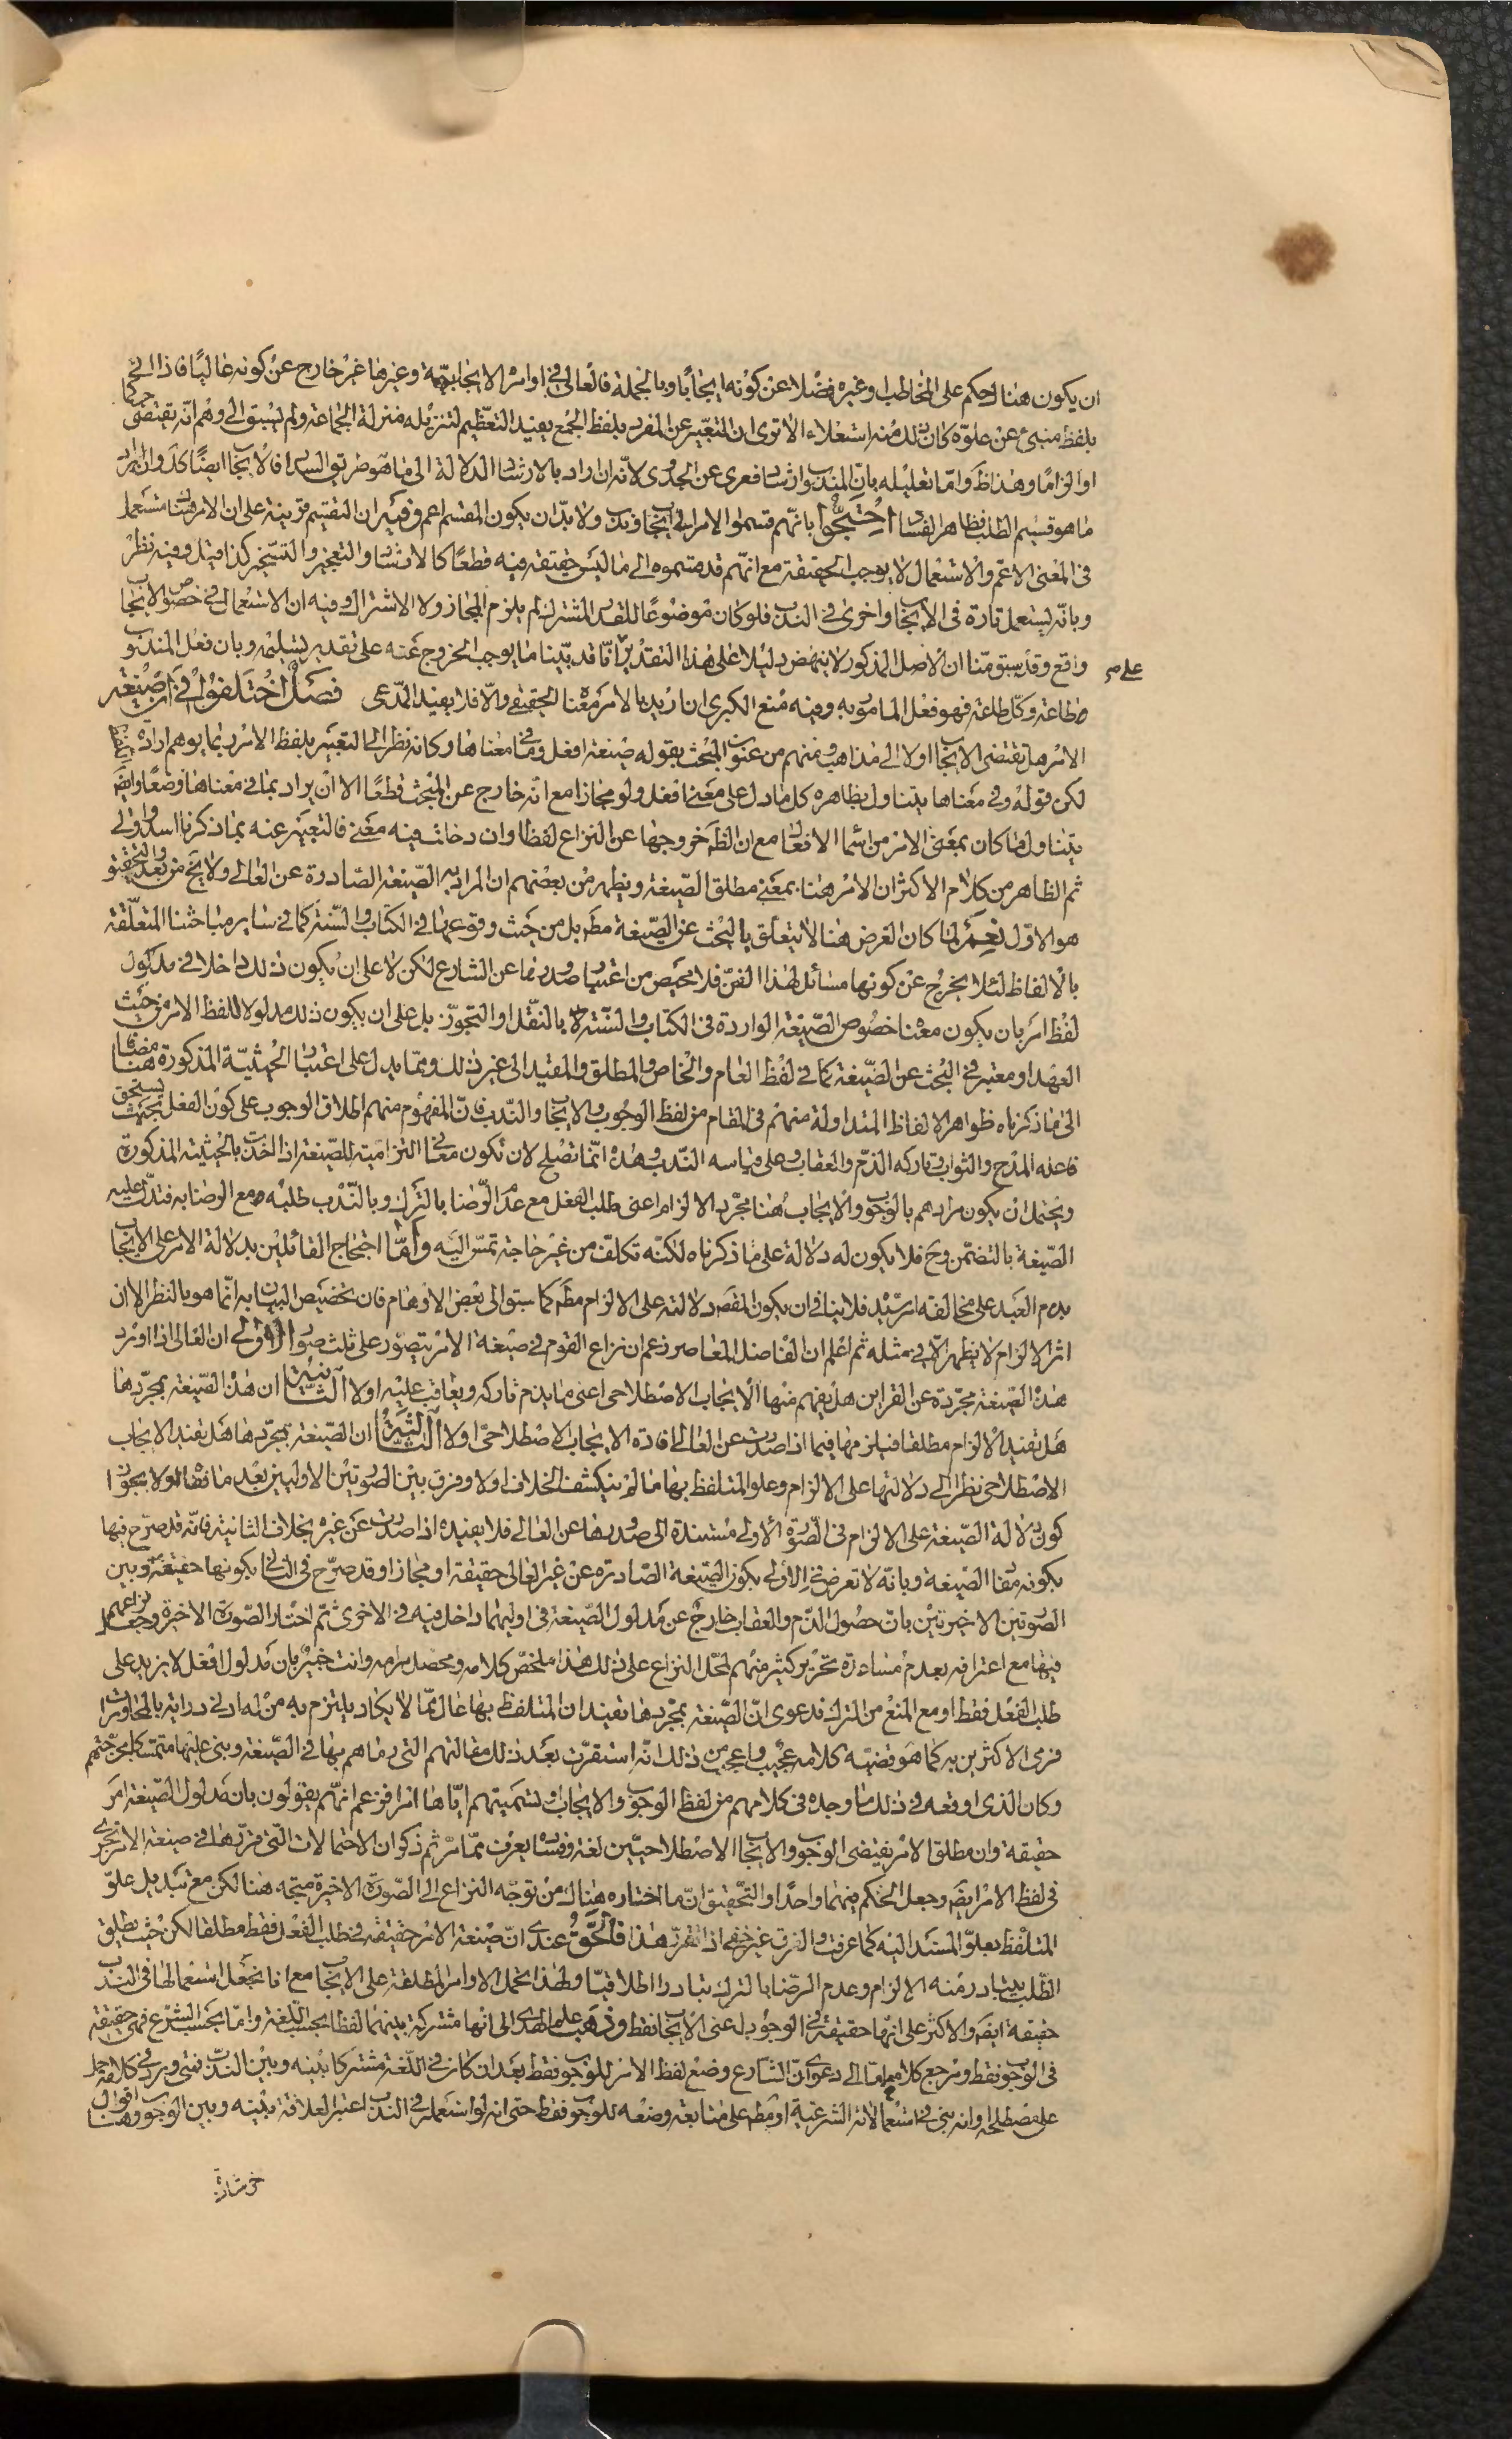 ان يكون هناك حكم على المخاطب وغيره فضلا عن كونه ايجابًا وبالجملة فالعالى فى اوامره الايجابيّة وغيرها غير خارج عن كونه عاليًا فاذا اتى
بلفظ منبئ عن علوّه كان ذلك منه استعلاء الا ترى ان التعبير عن المفرد بلفظ الجمع يفيد التعظيم لتنزيله منزلة الجماعة ولم يسبق الى وهم انّه يقتضى حكما
او الزامًا وهذا ظ وامّا تعليله بانّ المندوب ارشاد فعرى عن الجدوى لانّه ان اراد بالارشاد الدلالة الى ما هو طريق السداد فالايجاب ايضًا كذلك وان اراد
ما هو قسيم الطلب فظاهر الفساد احتجّوا بانّهم قسموا الامر الى ايجاب وندب ولا بدّ ان يكون المقسم اعم وفيه ان التقسيم قرينة على ان الامر هنا مستعمل
فى المعنى الاعمّ والاستعمال لا يوجب الحقيقة مع انّهم قد قسموه الى ما ليس حقيقة فيه قطعًا كالارشاد والتعجيز والتسخير كذا قيل وفيه نظر
وبانّه يستعمل تارة فى الايجاب واخرى فى الندب فلو كان موضوعًا للقدر المشترك لم يلزم المجاز ولا الاشتراك وفيه ان الاستعمال فى خصوص الايجاب
واقع وقد سبق منّا ان الاصل المذكور لا ينهض دليلا على هذا التقدير على انّا قد بيّنا ما يوجب الخروج عنه على تقدير تسليمه وبان فعل المندوب
طاعة وكلّ طاعة فهو فعل المامور به وفيه منع الكبرى ان اريد بالامر معناه الحقيقى والّا فلا يفيد المدّعى فصل اختلفوا فى ان صيغة
الامر هل تقتضى الايجاب اولا الى مذاهب ومنهم من عنون المبحث بقوله صيغة افعل وما فى معناها وكانه نظر الى التعبير بلفظ الامر ربما يوهم ارادة
لكن قوله وفى معناها يتناول بظاهره كل ما دل على معنى افعل ولو مجازا مع انّه خارج عن المبحث قطعًا الا ان يراد بما فى معناها وضعًا وايضً
يتناول ما كان بمعنى الامر من اسماء الافعال مع ان الظَ خروجها عن النزاع لفظا وان دخلت فيه معنى فالتعبير عنه بما ذكرنا اسد واولى
ثم الظاهر من كلام الاكثر ان الامر هنا بمعنى مطلق الصّيغة ويظهر من بعضهم ان المراد به الصّيغة الصّادرة عن العالى ولا يخ من بعد والتحقيق
هو الاوّل نعم لما كان الغرض هنا لا يتعلّق بالبحث عن الصّيغة مطَ بل من حيث وقوعها فى الكتاب والسّنة كما فى سائر مباحثنا المتعلّقة
بالالفاظ لئلا يخرج عن كونها مسائل لهذا الفنّ فلا محيص من اعتبار صدورها عن الشارع لكن لا على ان يكون ذلك داخلا فى مدلول
لفظ امر بان يكون معناه خصوص الصّيغة الواردة فى الكتاب والسّنة بالنقل او التجوّز بل على ان يكون ذلك مدلولا للفظ الامر من حيث
العهد او معتبر فى البحث عن الصّيغة كما فى لفظ العام والخاص والمطلق والمقيد الى غير ذلك وممّا يدل على اعتبار الحيثيّة المذكورة هنا مضافا
الى ما ذكرناه ظواهر الالفاظ المتداولة منهم فى المقام من لفظ الوجوب والايجاب والنّدب فانّ المفهوم منهم اطلاق الوجوب على كون الفعل بحيث يستحق
فاعله المدح والثواب وتاركه الذمّ والعقاب وعلى قياسه النّدب وهذه انّما تصلح لان تكون معانى التزاميّة للصّيغة اذا اخذت بالحيثيّة المذكورة
ويحتمل ان يكون مرادهم بالوجوب والايجاب هنا مجرّد الالزام اعنى طلب الفعل مع عدم الرّضا بالترك وبالنّدب طلبه مع الرضا به فتدلّ عليه
الصّيغة بالتضمّن وح فلا يكون له دلالة على ما ذكرناه لكنّه تكلّف من غير حاجة تمسّ اليه وامّا احتجاج القائلين بدلالة الامر على الايجاب
بذم العبد على مخالفته امر سيّده فلا ينافى ان يكون المقصَ دلالته على الالزام مطَ كما سبق الى بعض الاوهام فان تخصيص البيان به انّما هو بالنظر الى ان
اثر الالزام لا يظهر الّا فى مثله ثم اعلم ان الفاضل المعاصر زعم ان نزاع القوم فى صيغة الامر يتصوّر على ثلث صور الاولى ان العالى اذا اورد
هذه الصّيغة مجرّدة عن القراين هل يفهم منها الايجاب الاصطلاحى اعنى ما يذم تاركه ويعاقب عليه اولا الثانية ان هذه الصّيغة بمجرّدها
هل تفيد الالزام مطلقا فيلزمها فيما اذا صدرت عن العالى افادة الايجاب الاصطلاحىّ اولا الثالثة ان الصّيغة بمجرّدها هل تفيد الايجاب
الاصطلاحى نظرا الى دلالتها على الالزام وعلو المتلفظ بها ما لم ينكشف الخلاف اولا وفرق بين الصورتين الاوليين بعد ما نقّا لولا بجواز
كون دلالة الصّيغة على الالزام فى الصّورة الاولى مستندة الى صدورها عن العالى فلا يفيده اذا صدرت عن غيره بخلاف الثانية فانّه قد صرّح فيها
بكونه مفاد الصّيغة وبانّه لا تعرض فى الاولى بكون الصّيغة الصّادرة عن غير العالى حقيقة او مجازا وقد صرّح فى الثانى بكونها حقيقة وبين
الصورتين الاخيرتين بان حصول الذّم والعقاب خارج عن مدلول الصّيغة فى اوليهما داخل فيه فى الاخرى ثمّ اختار الصّورة الاخيرة وجعل نزاعهم
فيها مع اعترافه بعدم مساعدة تحرير كثير منهم لمحلّ النزاع على ذلك هذا ملخّص كلامه ومحصّل مرامه وانت خبير بان مدلول افعل لا يزيد على
طلب الفعل فقط او مع المنع من الترك فدعوى انّ الصّيغة بمجرّدها تفيد ان المتلفظ بها عال ممّا لا يكاد يلتزم به من له ادنى دراية بالمحاورات
فرمى الاكثرين به كما هو قضيّة كلامه عجيب واعجب من ذلك انّه استقرّت بعد ذلك مقالتهم التى رماهم بها فى الصّيغة وبنى عليها متمسكا بحجّتهم
وكان الذى اوقعه فى ذلك ما وجده فى كلامهم من لفظ الوجوب والايجاب وتسميتهم ايّاها امرا فزعم انّهم يقولون بان مدلول الصّيغة امر
حقيقة وان مطلق الامر يقتضى الوجوب والايجاب الاصطلاحيّين لغة وفساده يعرف ممّا مرّ ثم ذكر ان الاحتمالات الّتى قرّرها فى صيغة الامر تجرى
فى لفظ الامر ايضَ وجعل الحكم فيهما واحدًا والتحقيق انّ ما اختاره هناك من توجّه النزاع الى الصّورة الاخيرة متجه هنا لكن مع تبديل علوّ
المتلفّظ بعلوّ المستند اليه كما عرفت والفرق غير خفى اذا تقرّر هذا فالحقّ عندى انّ صيغة الامر حقيقة فى طلب الفعل فقط مطلقا لكن حيث يطلق
الطّلب يتبادر منه الالزام وعدم الرّضا بالترك تبادرا اطلاقيّا ولهذا نحمل الاوامر المطلقة على الايجاب مع انا نجعل استعمالها فى الندب
حقيقة ايضَ والاكثر على انّها حقيقة فى الوجوب بمعنى الايجاب فقط وذهب علم الهدى الى انها مشتركة بينهما لفظا بحسب اللّغة وامّا بحسب الشرع فهى حقيقة
فى الوجوب فقط ومرجع كلامه امّا الى دعوى انّ الشارع وضع لفظ الامر للوجوب فقط بعد ان كان فى اللّغة مشتركا بينه وبين الندب فمتى ورد فى كلامه حمل
على مصطلحه او انه بنى فى استعمالاته الشرعية اومطَ على متابعة وضعه للوجوب فقط حتى انه لو استعمله فى الندب اعتبر العلاقة بينه وبين الوجوب وهنا اقوال